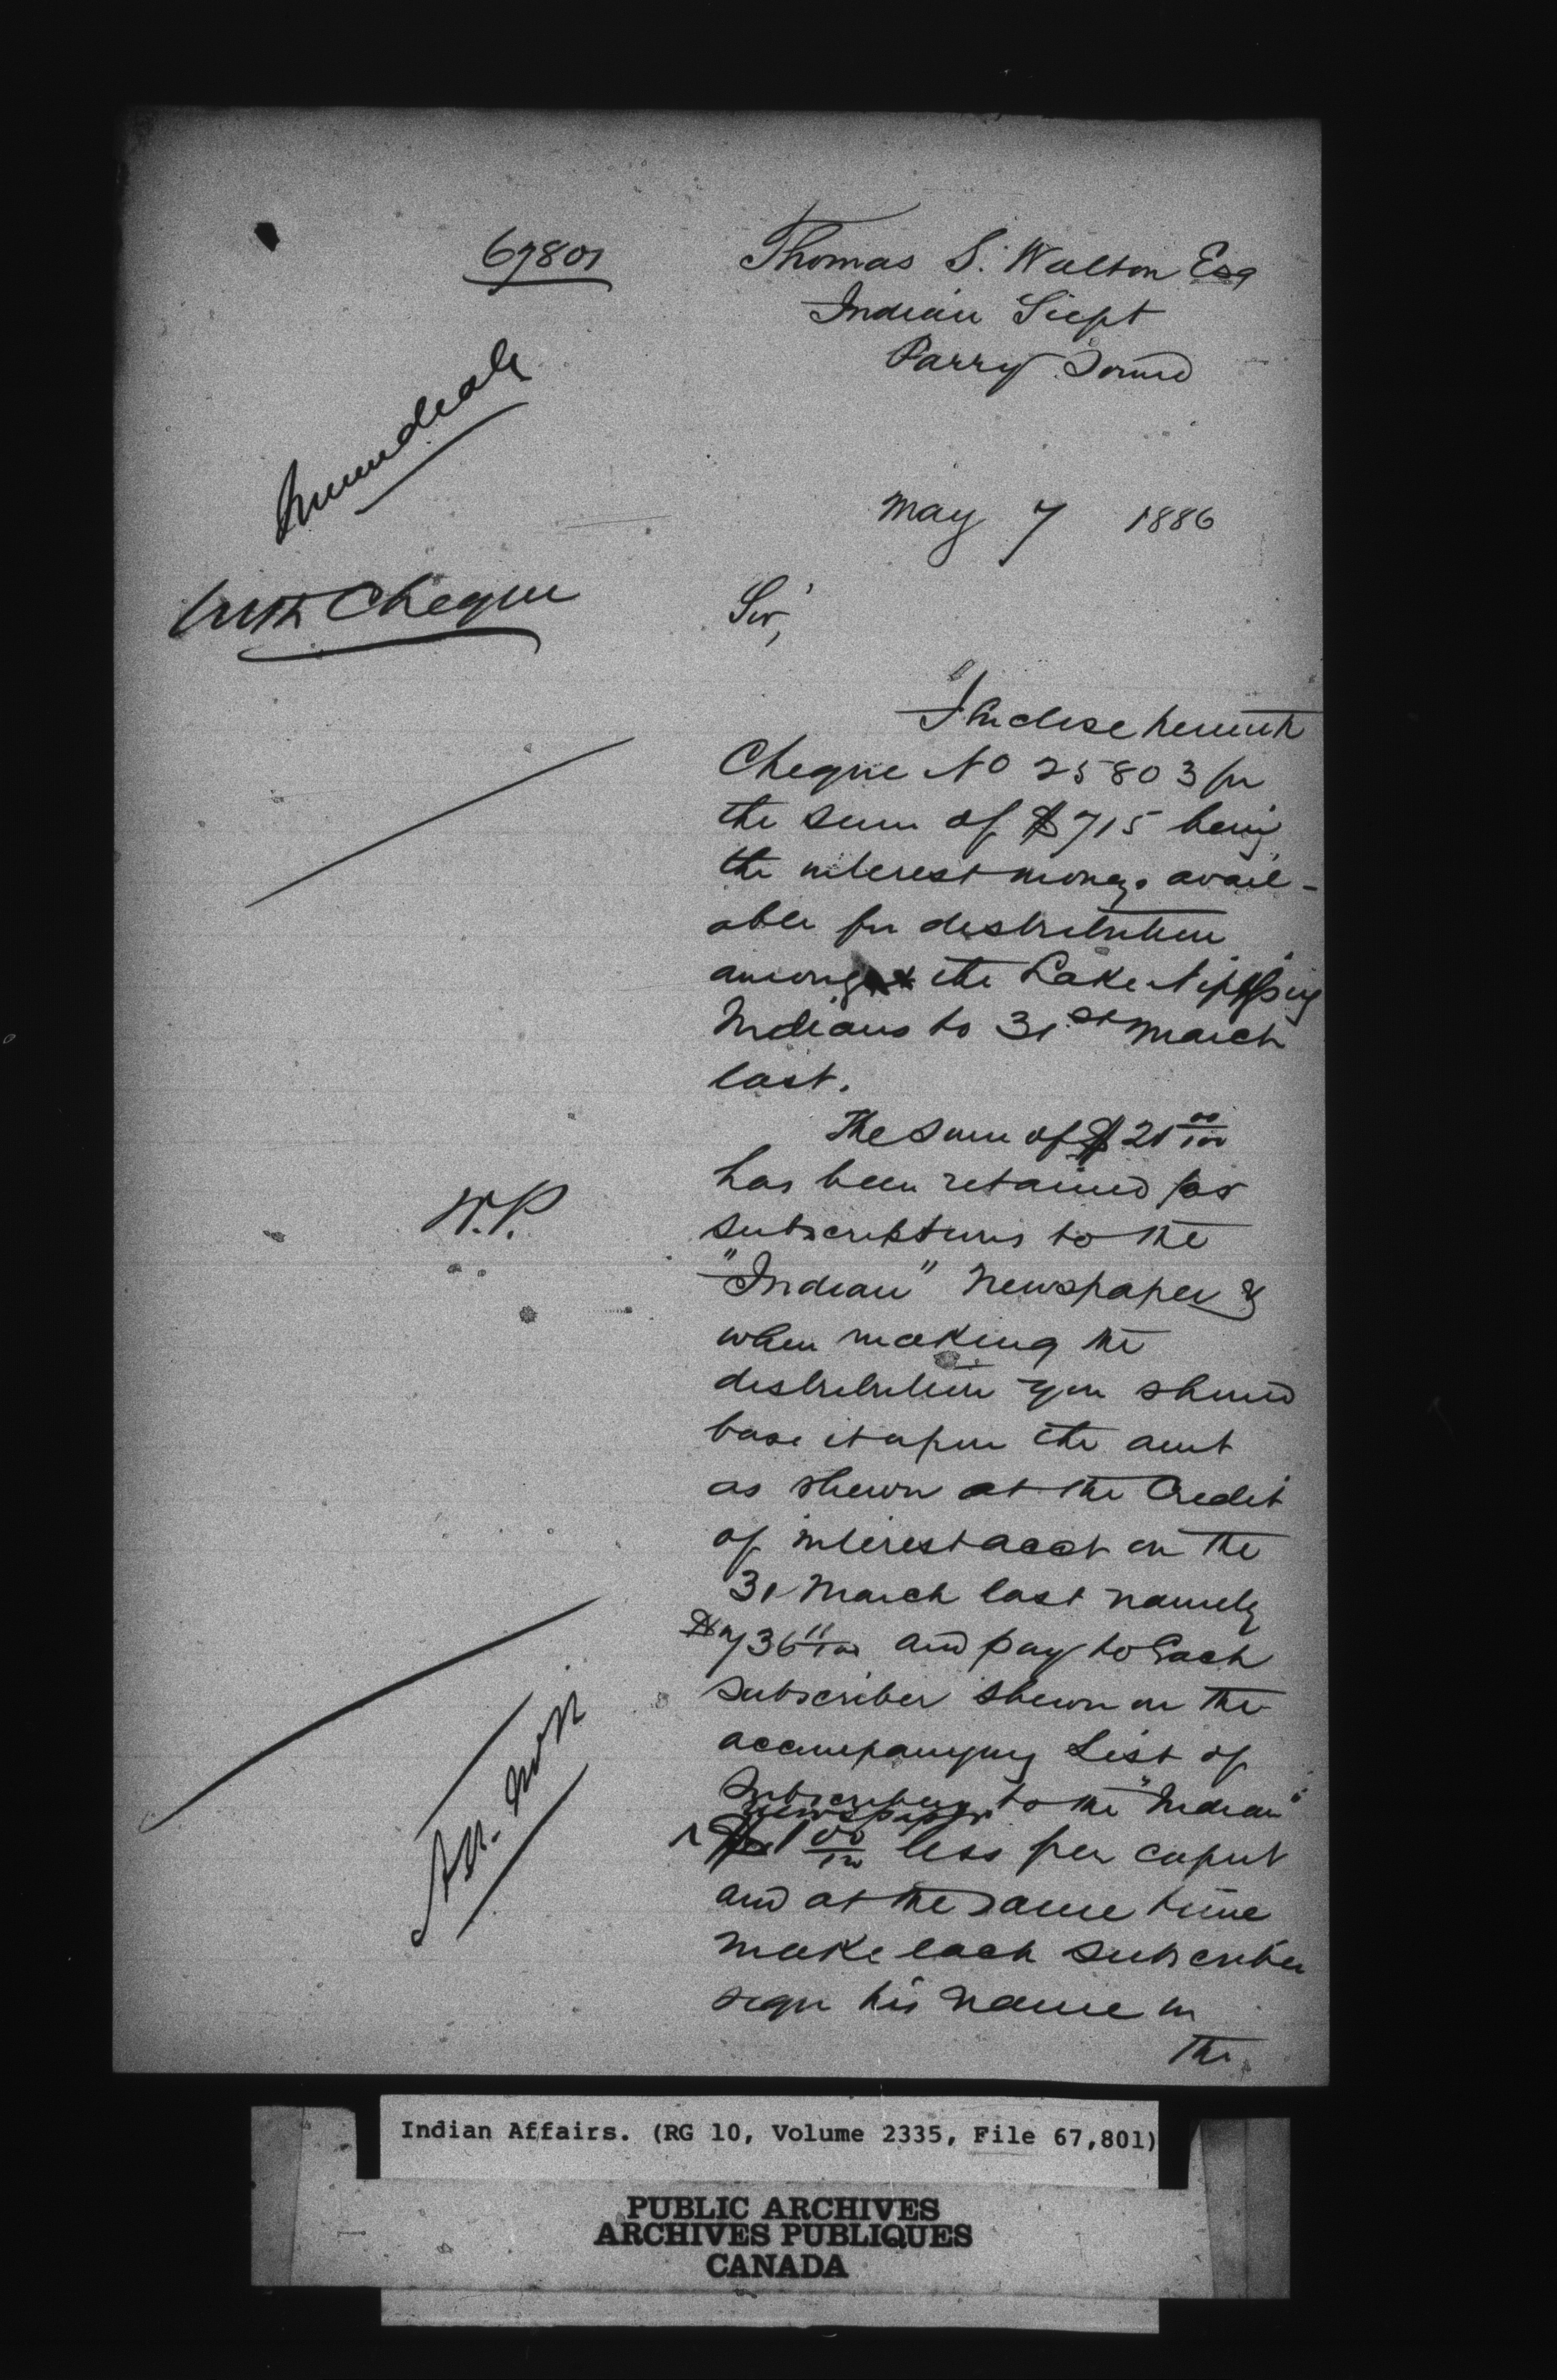 67801
Thomas S. Walton Esq
Indian Supt
Parry Sound
Immediate
May 7 1886
With Cheque
Sir,
I Enclose herewith
Cheque No 25803 for
the sum of $715 being
the interest moneys avail-
able for distribution
amongst the Lake Nipissing
Indians to 31st March
last.
The sum of $21 00/100
has been retained for
W.P.
subscriptions to the
"Indian" Newspaper &
when making the
distribution you should
base it upon the amt
as shewn at the Credit
of interest acct on the
31 March last namely
$736 11/100 and pay to Each
subscriber shewn on the
accompanying List of
Subscribers to the "Indian"
newspaper
$1 00/100 less per caput
and at the same time
make each subscriber
sign his name in
the
Indian Affairs. (RG 10, Volume 2335, File 67,801)
PUBLIC ARCHIVES
ARCHIVES PUBLIQUES
CANADA